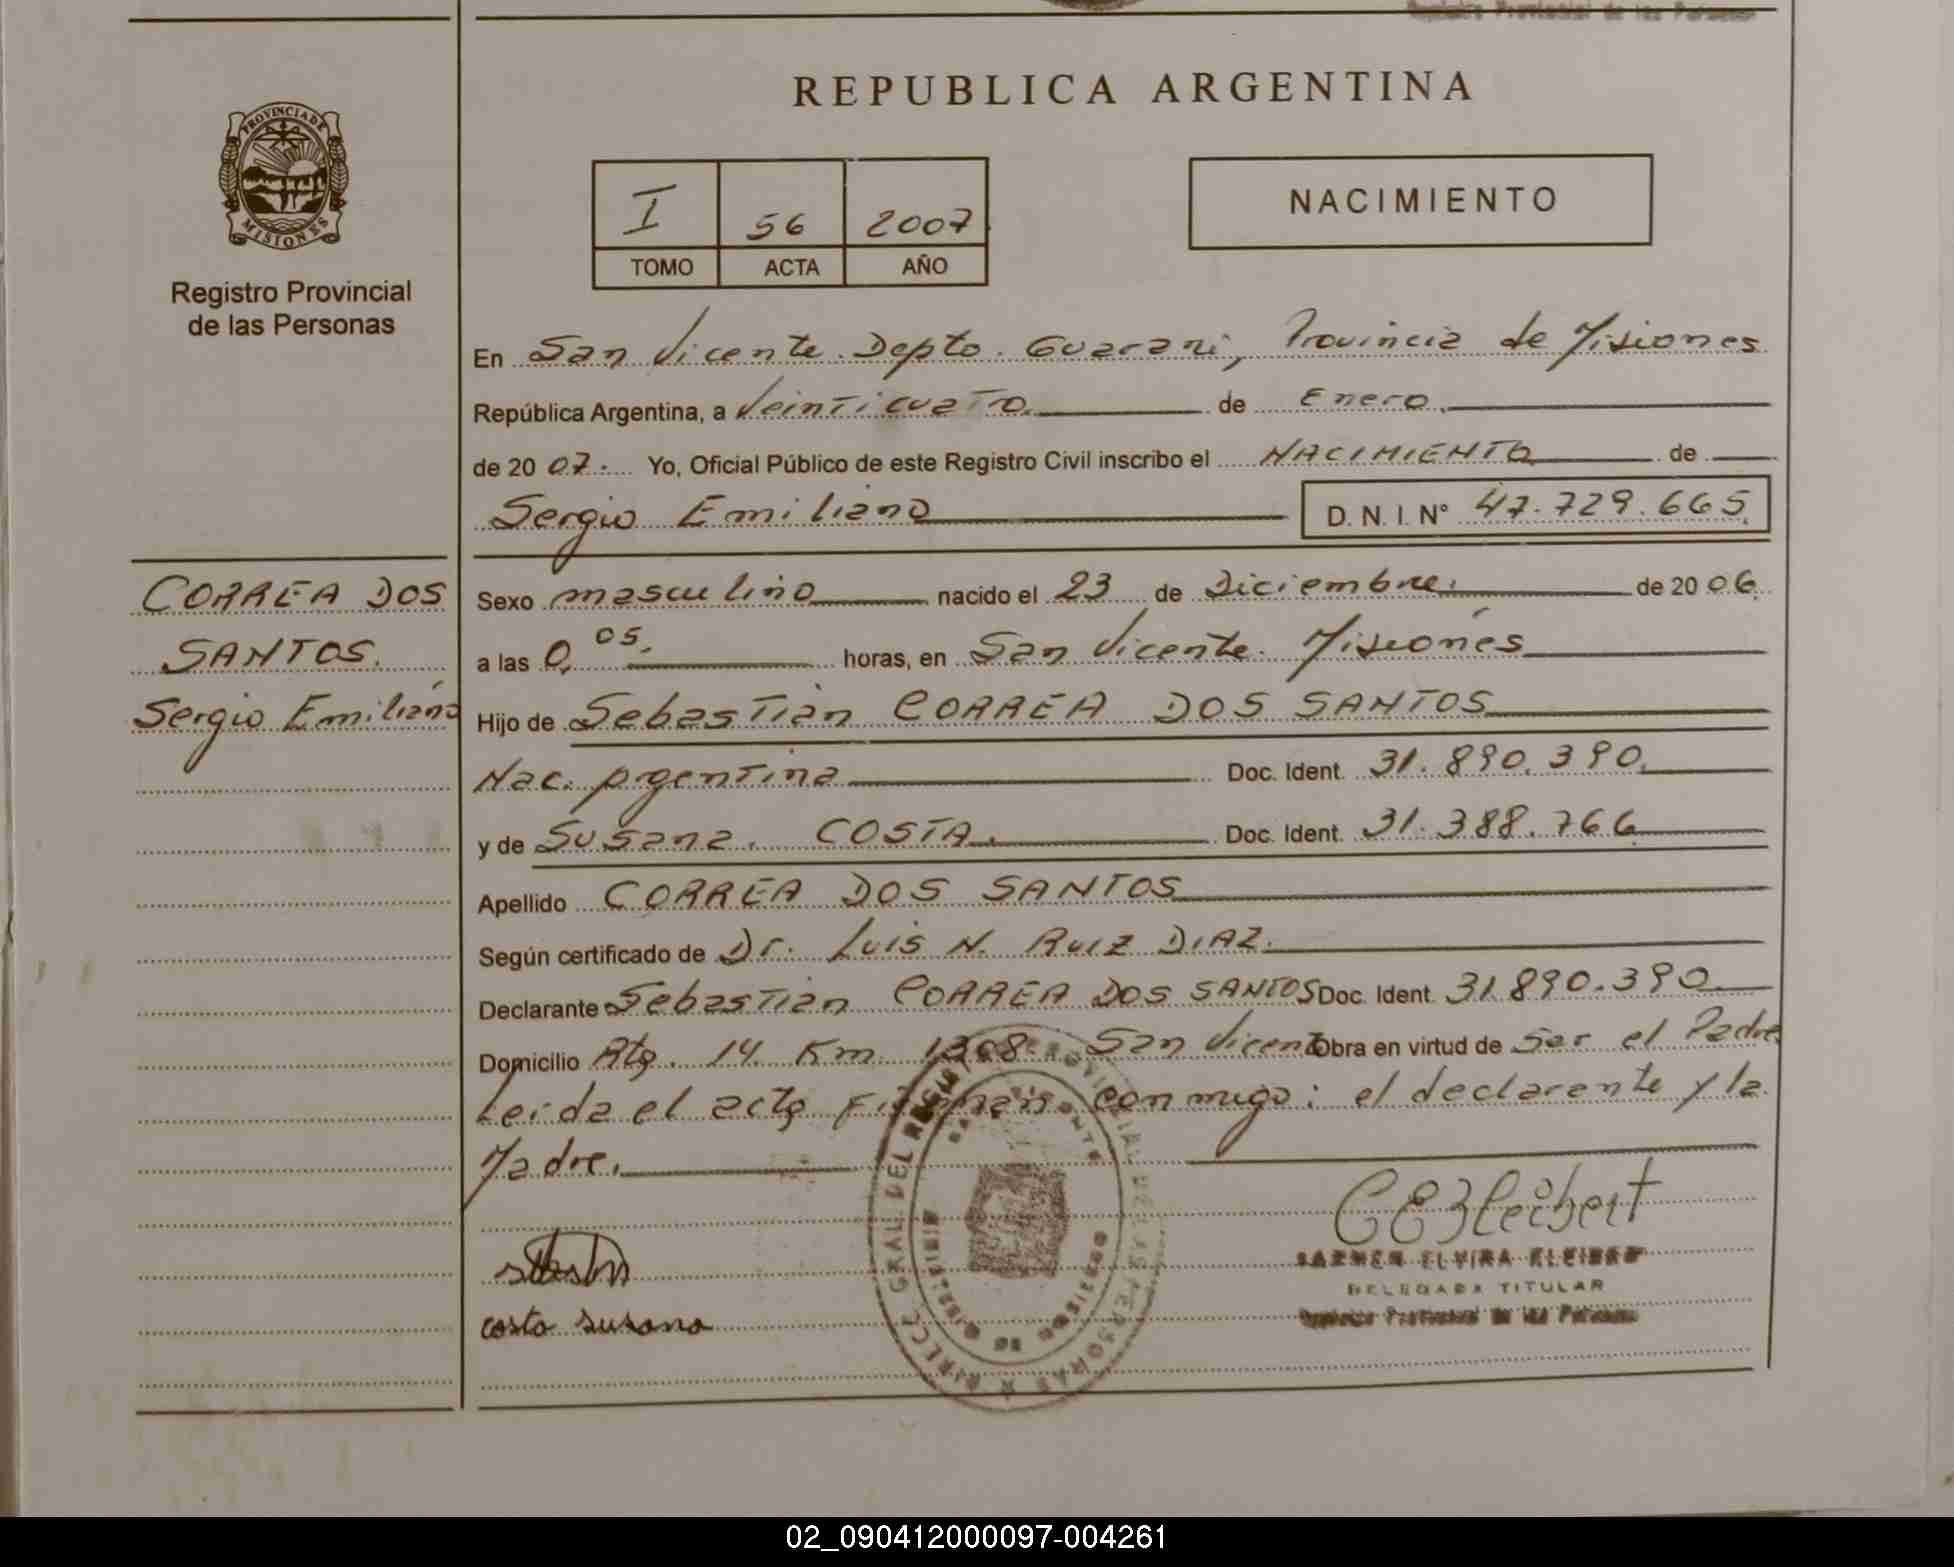 REPUBLICA ARGENTINA
PROVINCIA DE
MISIONES
Registro Provincial
de las Personas
I 56 2007
TOMO ACTA AÑO
NACIMIENTO
En San Vicente. Depto. Guarani, Provincia de Misiones
República Argentina, a Veinticuatro de Enero.
de 20 07. Yo, Oficial Público de este Registro Civil inscribo el NACIMIENTO de
Sergio Emiliano D. N. I. N° 47.729.665
CORREA DOS
SANTOS.
Sergio Emiliano
Sexo masculino nacido el 23 de Diciembre. de 20 06.
a las 0,05. horas, en San Vicente. Misiones
Hijo de Sebastián CORREA DOS SANTOS
Nac. Argentina Doc. Ident. 31.890.390.
y de Susana. COSTA. Doc. Ident. 31.388.766
Apellido CORREA DOS SANTOS
Según certificado de Dr. Luis N. RUIZ DIAZ.
Declarante Sebastián CORREA DOS SANTOS Doc. Ident. 31.890.390
Domicilio Rta. 14 Km 1308 San Vicente Obra en virtud de Ser el Padre.
Leida el acta Firman conmigo: el declarante y la
Madre.
costa susana
DELEGADA TITULAR
Registro Provincial de las Personas
02_090412000097-004261